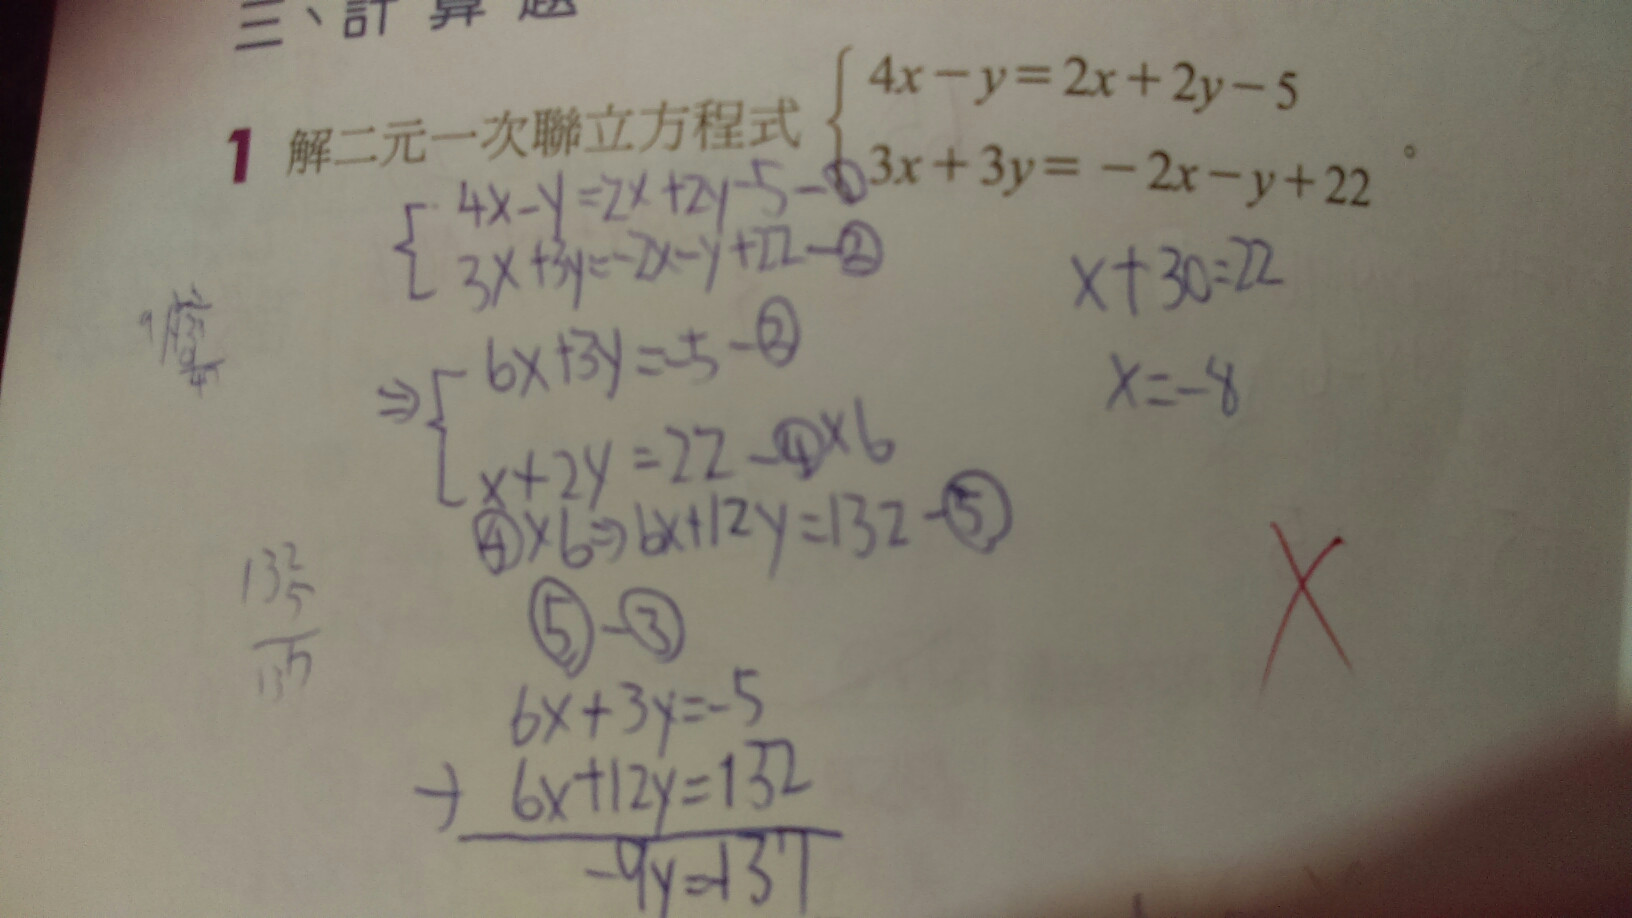 三、計算題
1 解二元一次聯立方程式 { 4x-y=2x+2y-5
3x+3y=-2x-y+22 。
{ 4x-y=2x+2y-5-①
3x+3y=-2x-y+22-②
⇒{ 6x+3y=-5-②
x+2y=22-④×6
④×6⇒6x+12y=132-⑤
⑤-③
6x+3y=-5
-) 6x+12y=132
-9y=-137
x+30=22
x=-8
132
5
137